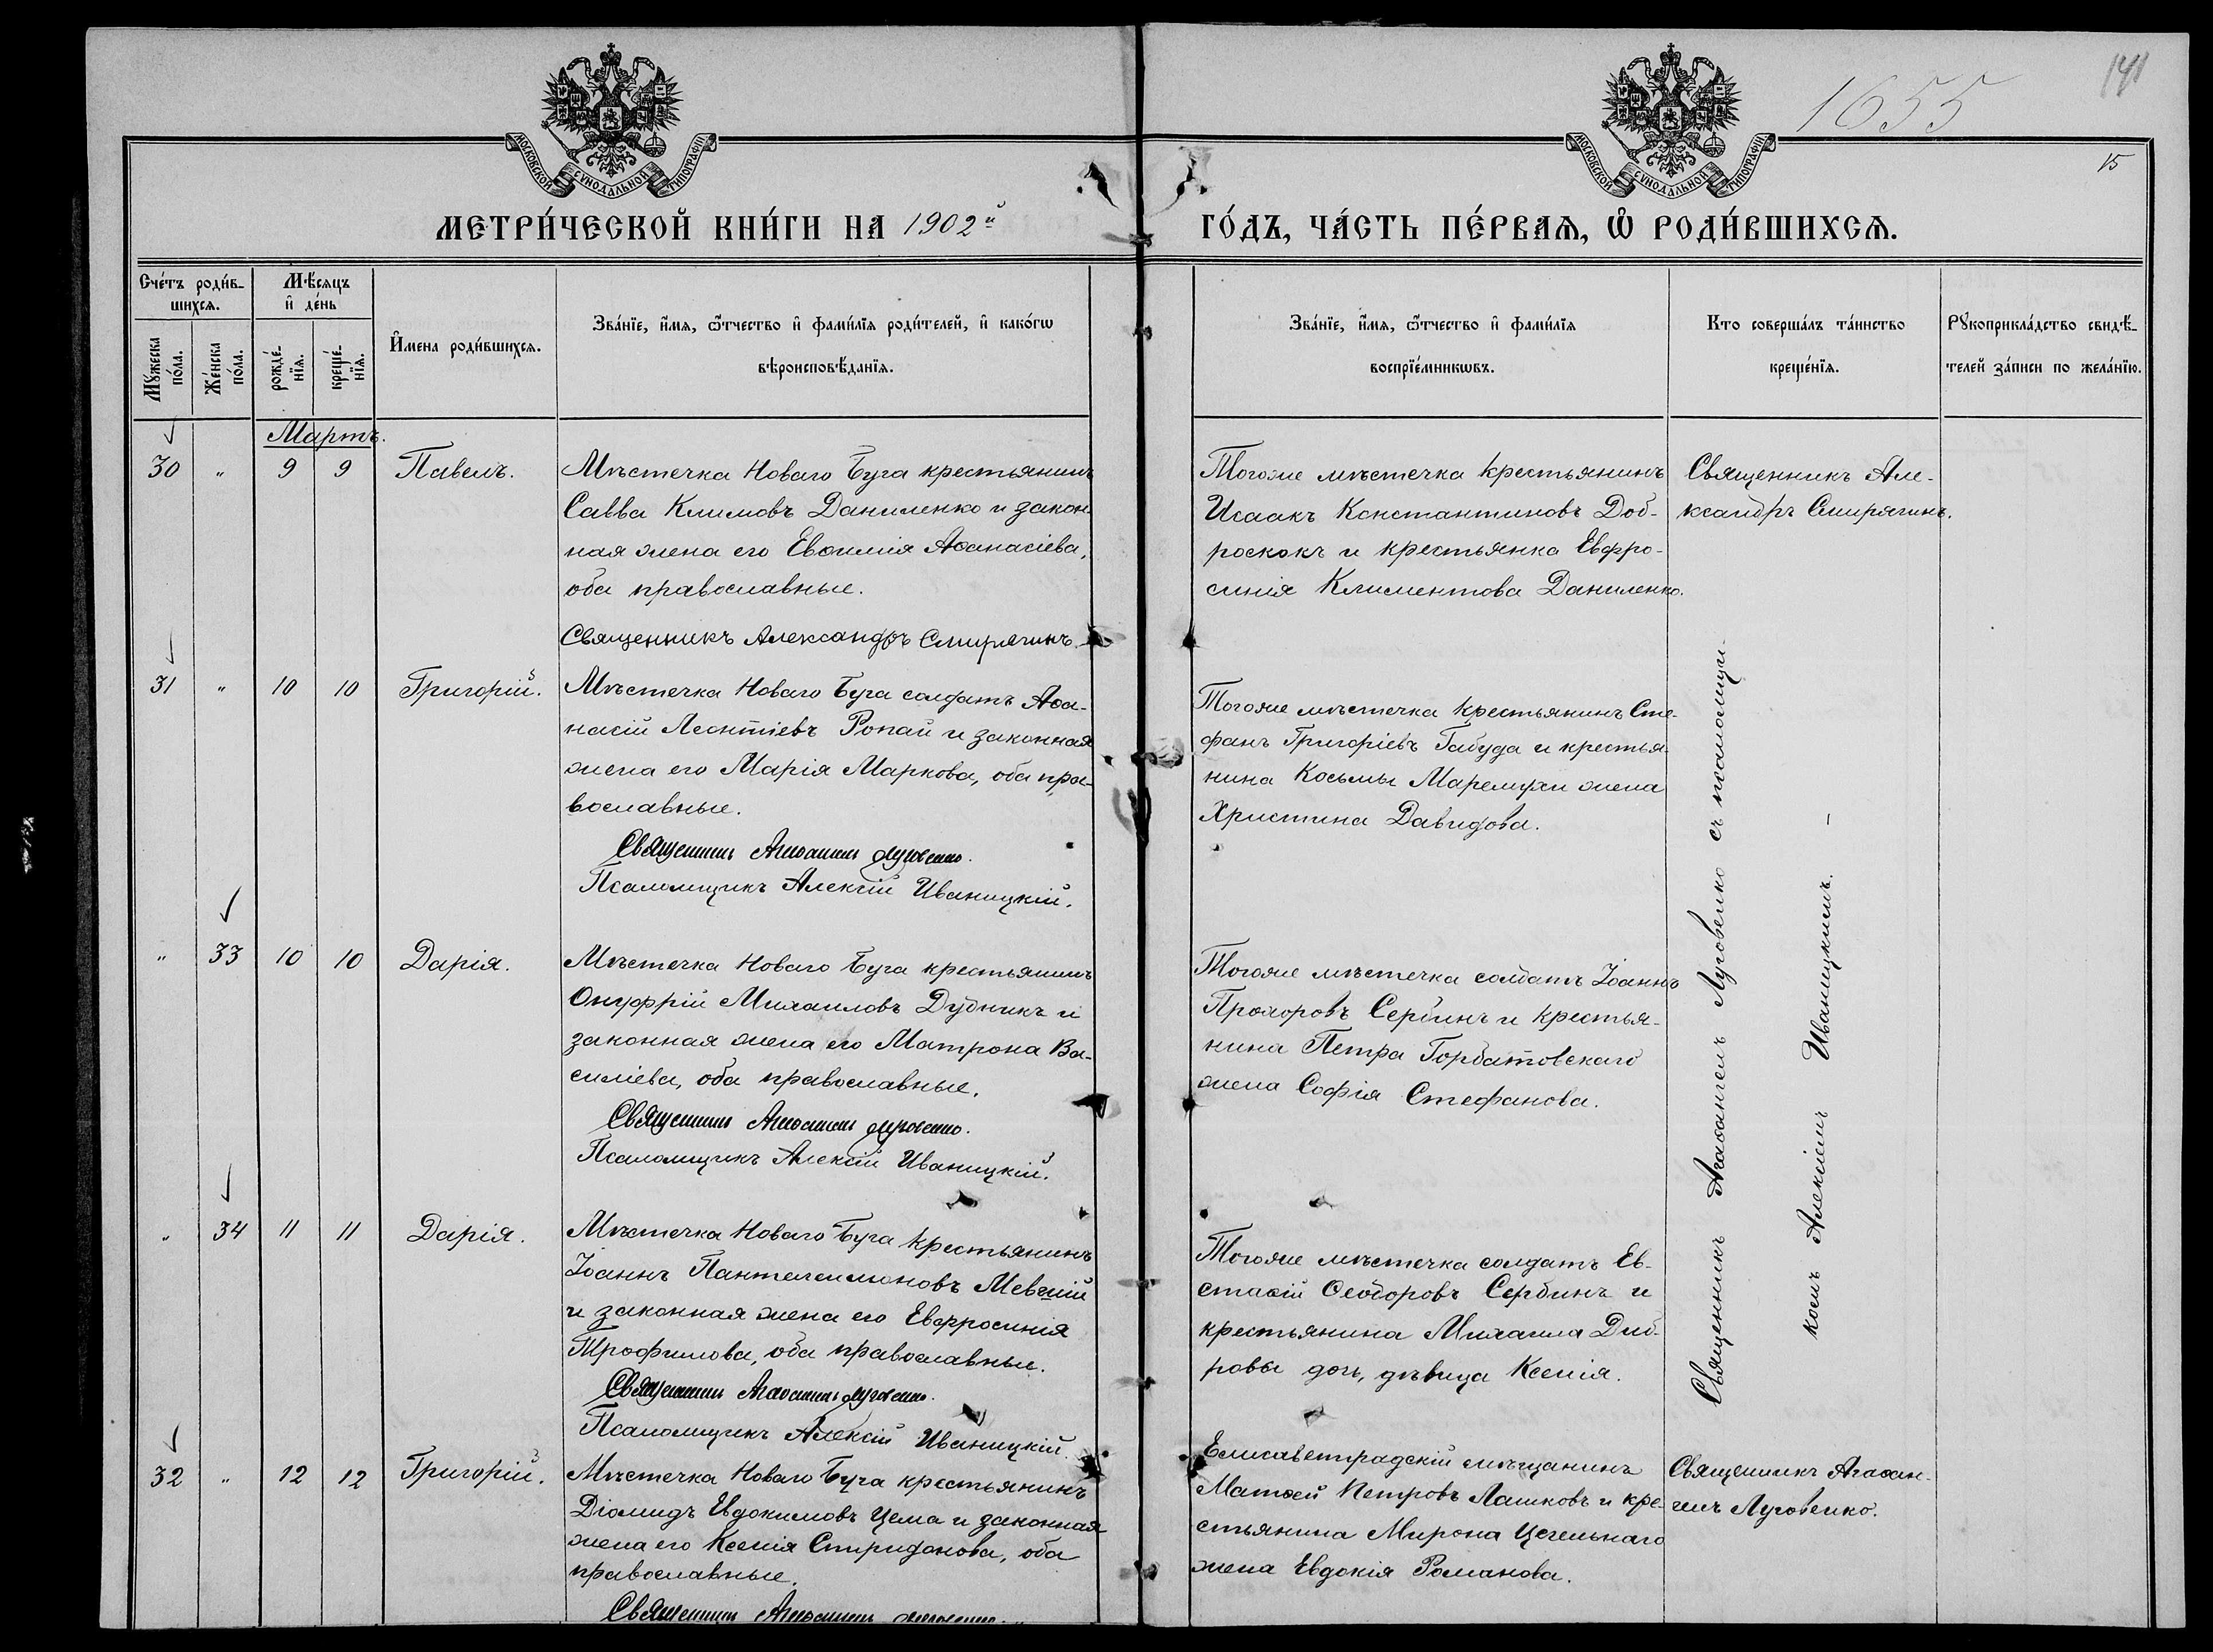 1655
141
15
МОСКОВСКОЙ СУНОДАЛЬНОЙ ТИПОГРАФІИ
МОСКОВСКОЙ СУНОДАЛЬНОЙ ТИПОГРАФІИ
МЕТРИ́ЧЕСКОЙ КНИ́ГИ НА 1902й ГО́ДЪ, ЧА́СТЬ ПЕ́РВАѦ, Ѡ҆ РОДИ́ВШИХСѦ.
Сче́тъ роди́в-
шихсѧ.
Мѣ́сяцъ
и҆ де́нь
Мꙋ́жеска по́ла.
Же́нска по́ла.
рожде́-
нїѧ.
креще́-
нїѧ.
И҆мена роди́вшихсѧ.
Зва́нїе, и҆́мѧ, ѻ҆́тчество и҆ фами́лїѧ роди́телей, и҆ како́гѡ
вѣроисповѣ́данїѧ.
Зва́нїе, и҆́мѧ, ѻ҆́тчество и҆ фами́лїѧ
воспрїе́мникѡвъ.
Кто соверша́лъ та́инство
креще́нїѧ.
Рꙋкоприкла́дство свидѣ́-
телей за́писи по жела́нїю.
Мартъ.
30 " 9 9 Павелъ.
Мѣстечка Новаго Буга крестьянинъ
Савва Климовъ Даниленко и закон-
ная жена его Евѳимія Аѳанасіева,
оба православные.
Священникъ Александръ Смирягинъ.
Тогоже мѣстечка крестьянинъ
Исаакъ Константиновъ Доб-
роскокъ и крестьянка Евфро-
синія Климентова Даниленко.
Священникъ Але-
ксандръ Смирягинъ.
31 " 10 10 Григорій.
Мѣстечка Новаго Буга солдатъ Аѳа-
насій Леонтіевъ Ропай и законная
жена его Марія Маркова, оба пра-
вославные.
Священникъ Агаѳангелъ Луговенко.
Псаломщикъ Алексій Иваницкій.
Тогоже мѣстечка крестьянинъ Сте-
фанъ Григоріевъ Габуда и крестья-
нина Косьмы Маремухи жена
Христина Давидова.
Священникъ Агаѳангелъ Луговенко съ псаломщи-
комъ Алексіемъ Иваницкимъ. –
" 33 10 10 Дарія.
Мѣстечка Новаго Буга крестьянинъ
Онуфрій Михаиловъ Дубникъ и
законная жена его Матрона Ва-
силіева, оба православные.
Священникъ Агаѳангелъ Луговенко.
Псаломщикъ Алексій Иваницкій.
Тогоже мѣстечка солдатъ Іоаннъ
Прохоровъ Сербинъ и крестья-
нина Петра Горбатовскаго
жена Софія Стефанова.
" 34 11 11 Дарія.
Мѣстечка Новаго Буга крестьянинъ
Іоаннъ Пантелеимоновъ
и законная жена его Евфросинія
Трофимова, оба православные.
Священникъ Агаѳангелъ Луговенко.
Псаломщикъ Алексій Иваницкій.
Тогоже мѣстечка солдатъ Ев-
стаѳій Ѳеодоровъ Сербинъ и
крестьянина Михаила Диб-
ровы дочь, дѣвица Ксенія.
32 " 12 12 Григорій.
Мѣстечка Новаго Буга крестьянинъ
Діомидъ Евдокимовъ Цема и законная
жена его Ксенія Спиридонова, оба
православные.
Священникъ Агаѳангелъ Луговенко.
Елисаветградскій мѣщанинъ
Матѳей Петровъ Лашковъ и кре-
стьянина Мирона Цегельнаго
жена Евдокія Романова.
Священникъ Агаѳан-
гелъ Луговенко.